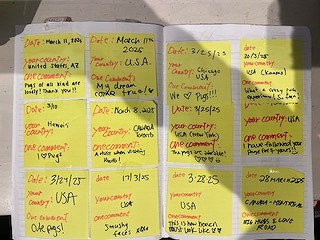 Date: March 11, 2025
your country:
United States, AZ
one comment
Pugs of all kind are
lovely! Thank you!!
Date: March 11th
2025
Your
country: U.S.A.
One Comment:
My dream
come true!
Date: 3/10
your
country:
Hawaii
one
comment:
I ♡ Pugs
Date: March 8, 2025
your
country:
CANADA
one
comment:
Date: 3/24/25
your
country:
USA
one comment
Cute pugs!
Date:
17/3/25
your
country
USA
one
comment
Smushy
faces
Date: 3/25/25
Your
country: Chicago
USA
One comment:
We ♡ Pugs!!!
date
20/3/25
your country
USA (Kansas)
one comment
What a crazy pug
experience
Date: 3/25/25
your
country: USA
(New York)
one
comment:
The pugs are
your country: USA
one
comment:
I have followed your
page for
Date:
3-28-25
your
country:
USA
one comment:
This is how heaven
must look like
date
28 March 2025
your country
one comment
PUG HUGS & LOVE
XOXO